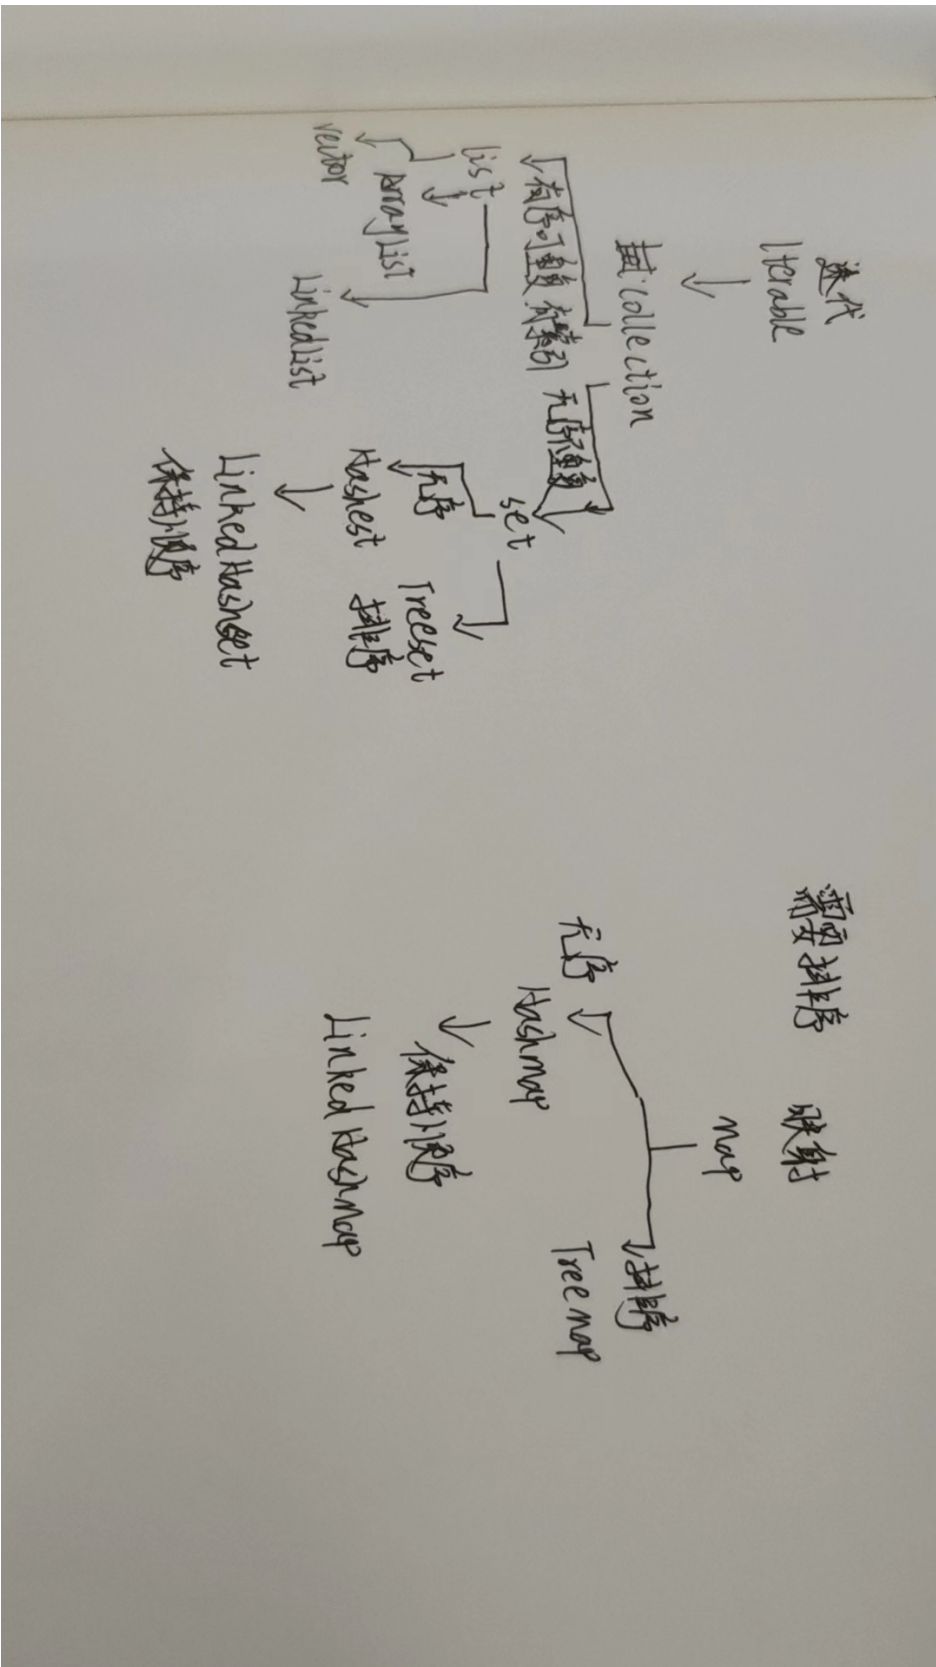 迭代
Iterable
collection
有序可重复 有索引
无序不重复
list
set
vector
ArrayList
LinkedList
无序
Hashest
Treeset
排序
LinkedHashset
保持顺序
需要排序
映射
map
无序
排序
Hashmap
Treemap
保持顺序
LinkedHashmap